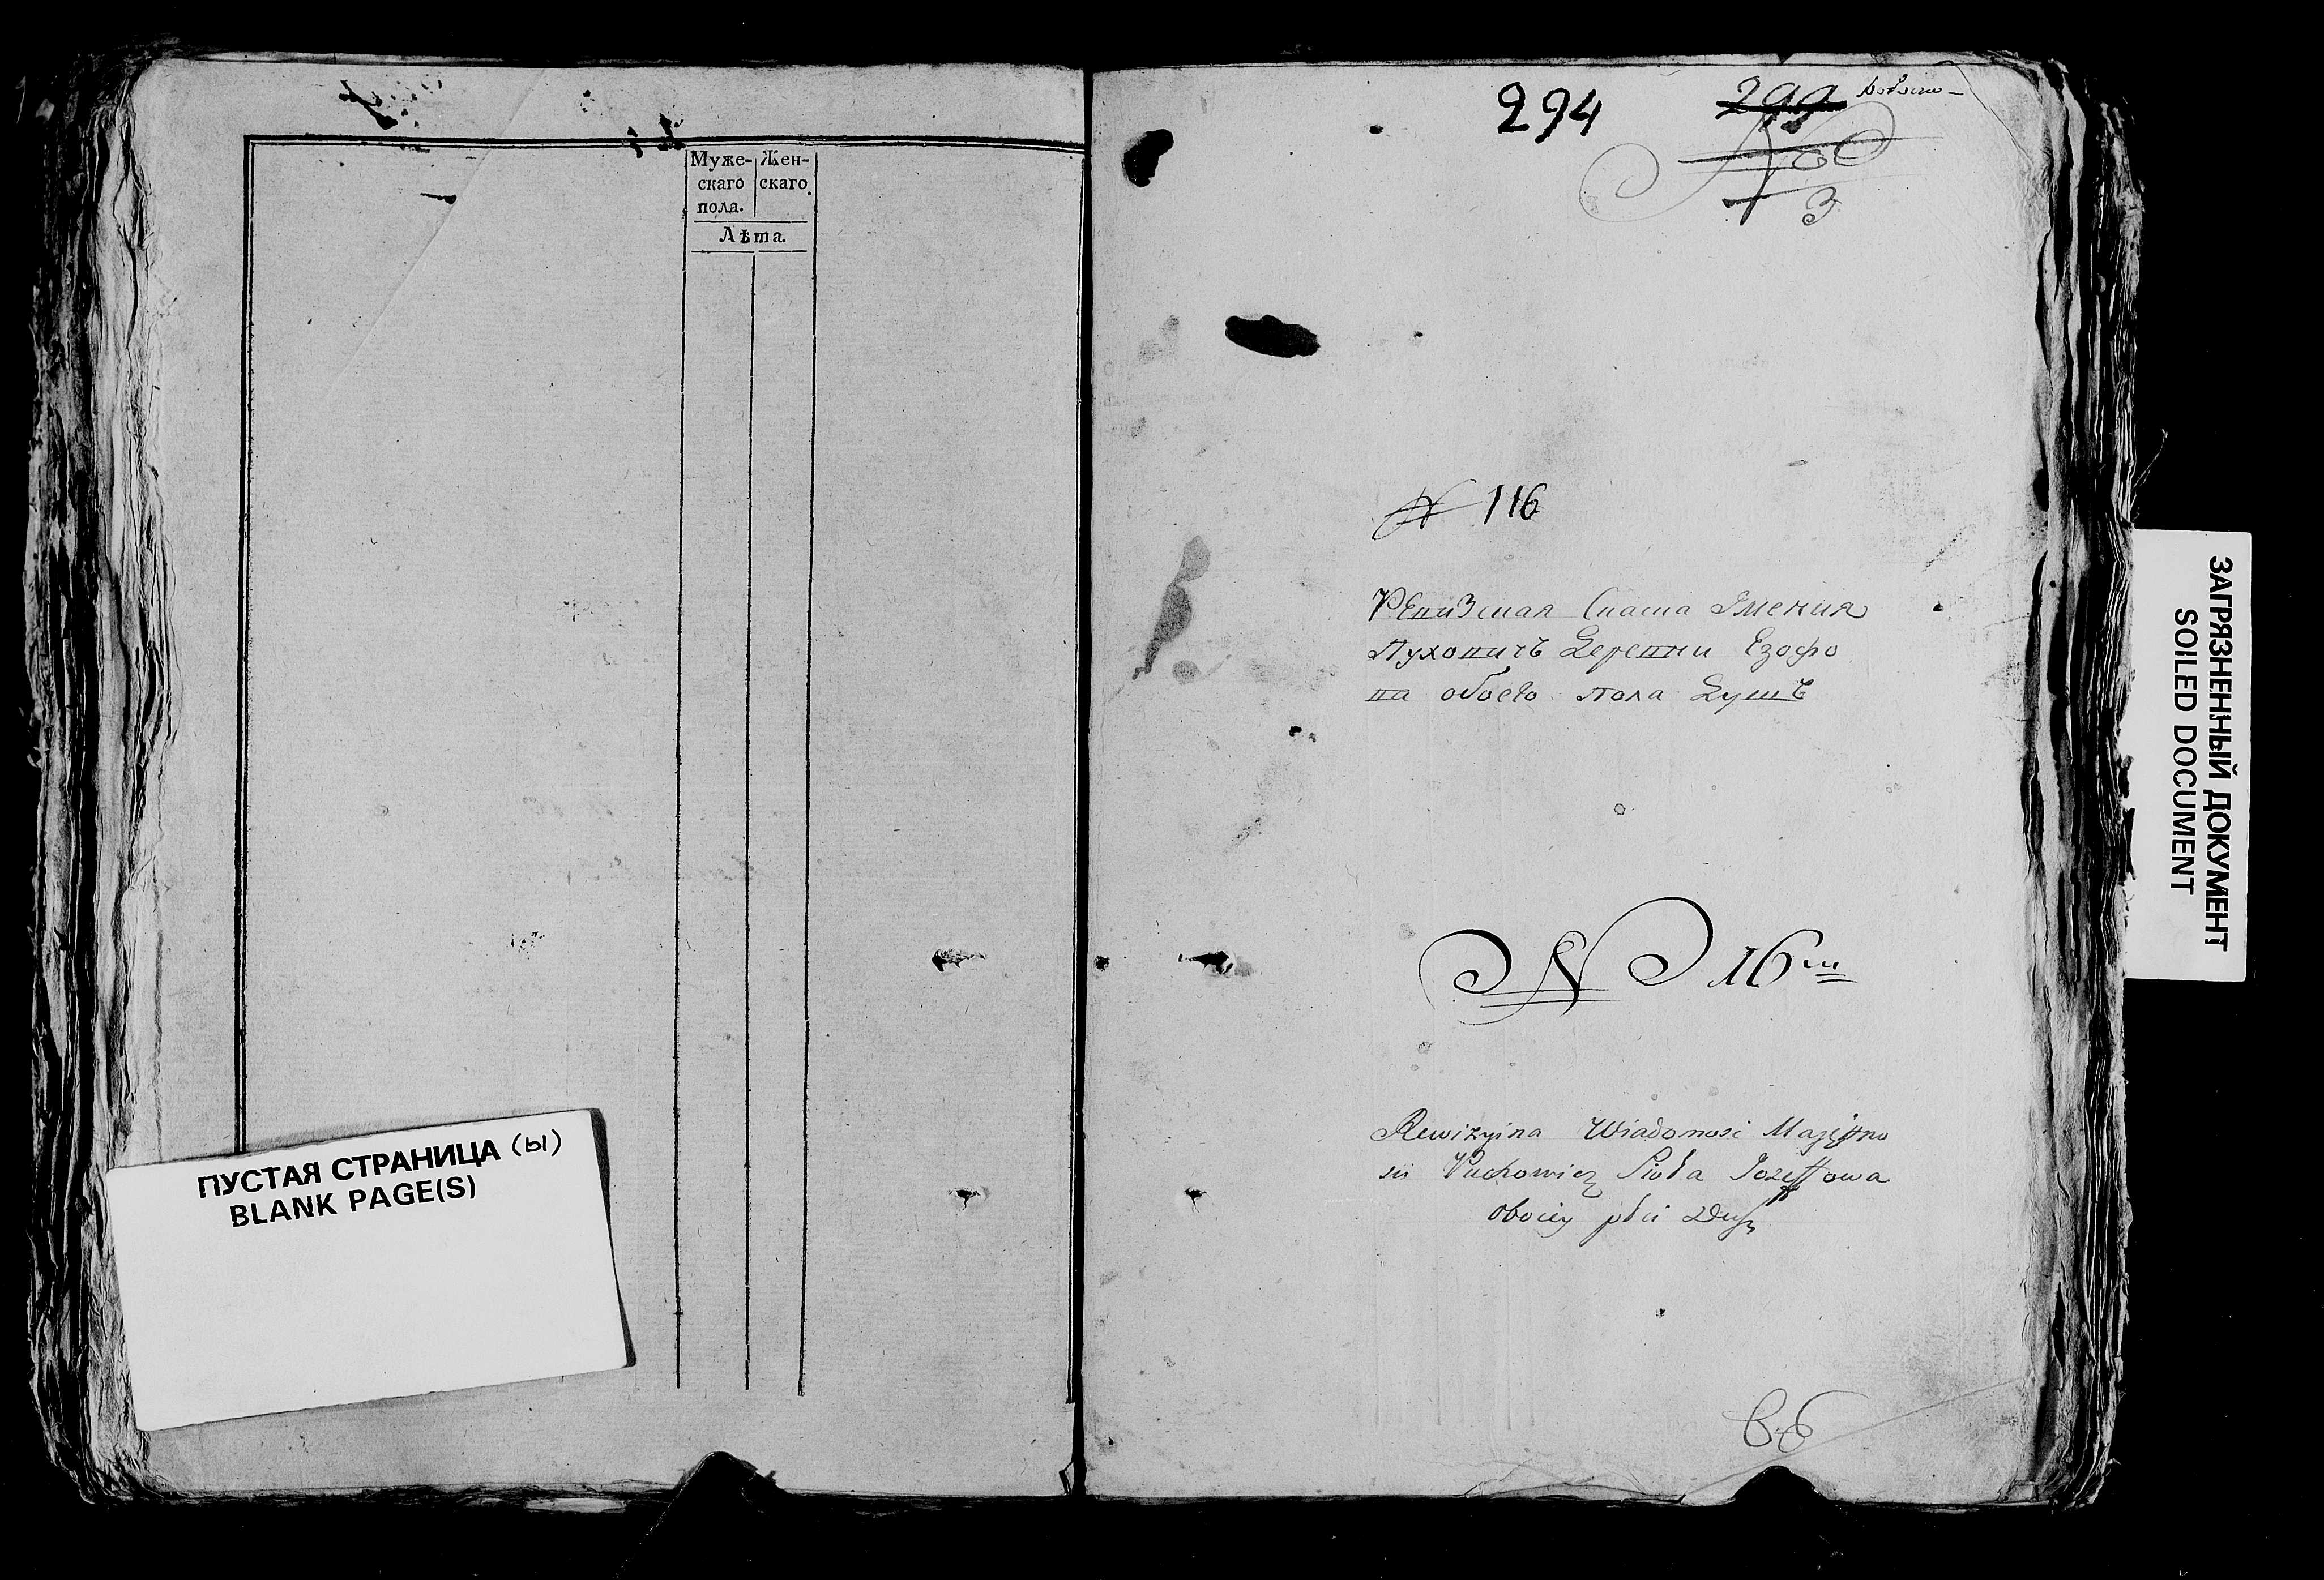 Муже- Жен-
скаго скаго.
пола.
Лѣта.
ПУСТАЯ СТРАНИЦА (ы)
BLANK PAGE(S)
294 299
3
N 116
Ревизская Скаска Имения
Пуховичъ Деревни Езофо
ва обоего пола душъ
N 16
Rewizyina Wiadomosc Majętno
sci Puchowicz Sioła Jozeffowa
oboiey płci Dusz
ЗАГРЯЗНЕННЫЙ ДОКУМЕНТ
SOILED DOCUMENT